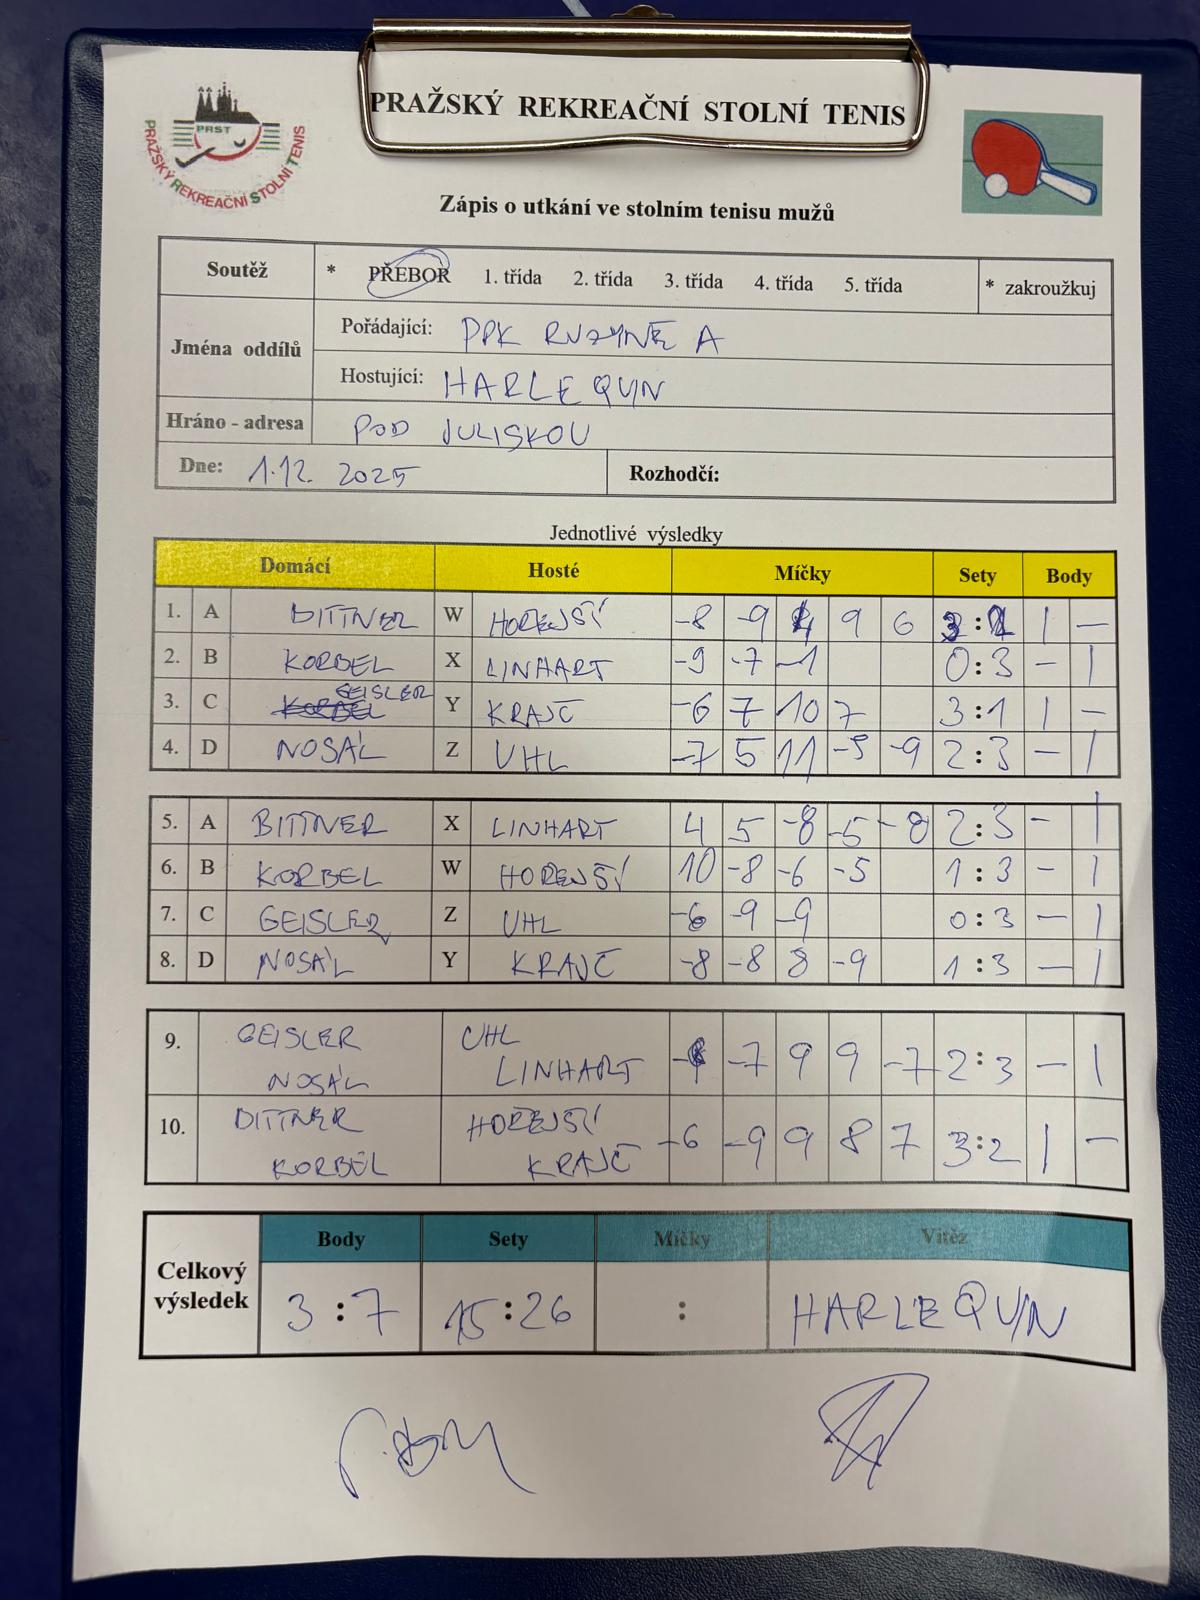 PRAŽSKÝ REKREAČNÍ STOLNÍ TENIS
PRST
PRAŽSKÝ REKREAČNÍ STOLNÍ TENIS
Zápis o utkání ve stolním tenisu mužů
Soutěž * PŘEBOR 1. třída 2. třída 3. třída 4. třída 5. třída * zakroužkuj
Jména oddílů
Pořádající: PPK RUZYNĚ A
Hostující: HARLEQUIN
Hráno - adresa POD JULISKOU
Dne: 1.12. 2025 Rozhodčí:
Jednotlivé výsledky
Domácí Hosté Míčky Sety Body
1. A BITTNER W HOREJŠÍ -8 -9 9 6 3:2 1 —
2. B KORBEL X LINHART -9 -7 -1 0:3 — 1
3. C GEISLER Y KRAJČ -6 7 10 7 3:1 1 —
4. D NOSÁL Z UHL -7 5 11 -5 -9 2:3 — 1
5. A BITTNER X LINHART 4 5 -8 -5 -8 2:3 — 1
6. B KORBEL W HOREJŠÍ 10 -8 -6 -5 1:3 — 1
7. C GEISLER Z UHL -6 -9 -9 0:3 — 1
8. D NOSÁL Y KRAJČ -8 -8 8 -9 1:3 — 1
9. GEISLER UHL
NOSÁL LINHART -7 9 9 -7 2:3 — 1
10. BITTNER HOŘEJŠÍ
KORBEL KRAJČ -6 -9 9 8 7 3:2 1 —
Celkový výsledek
Body Sety Míčky Vítěz
3:7 15:26 : HARLEQUIN